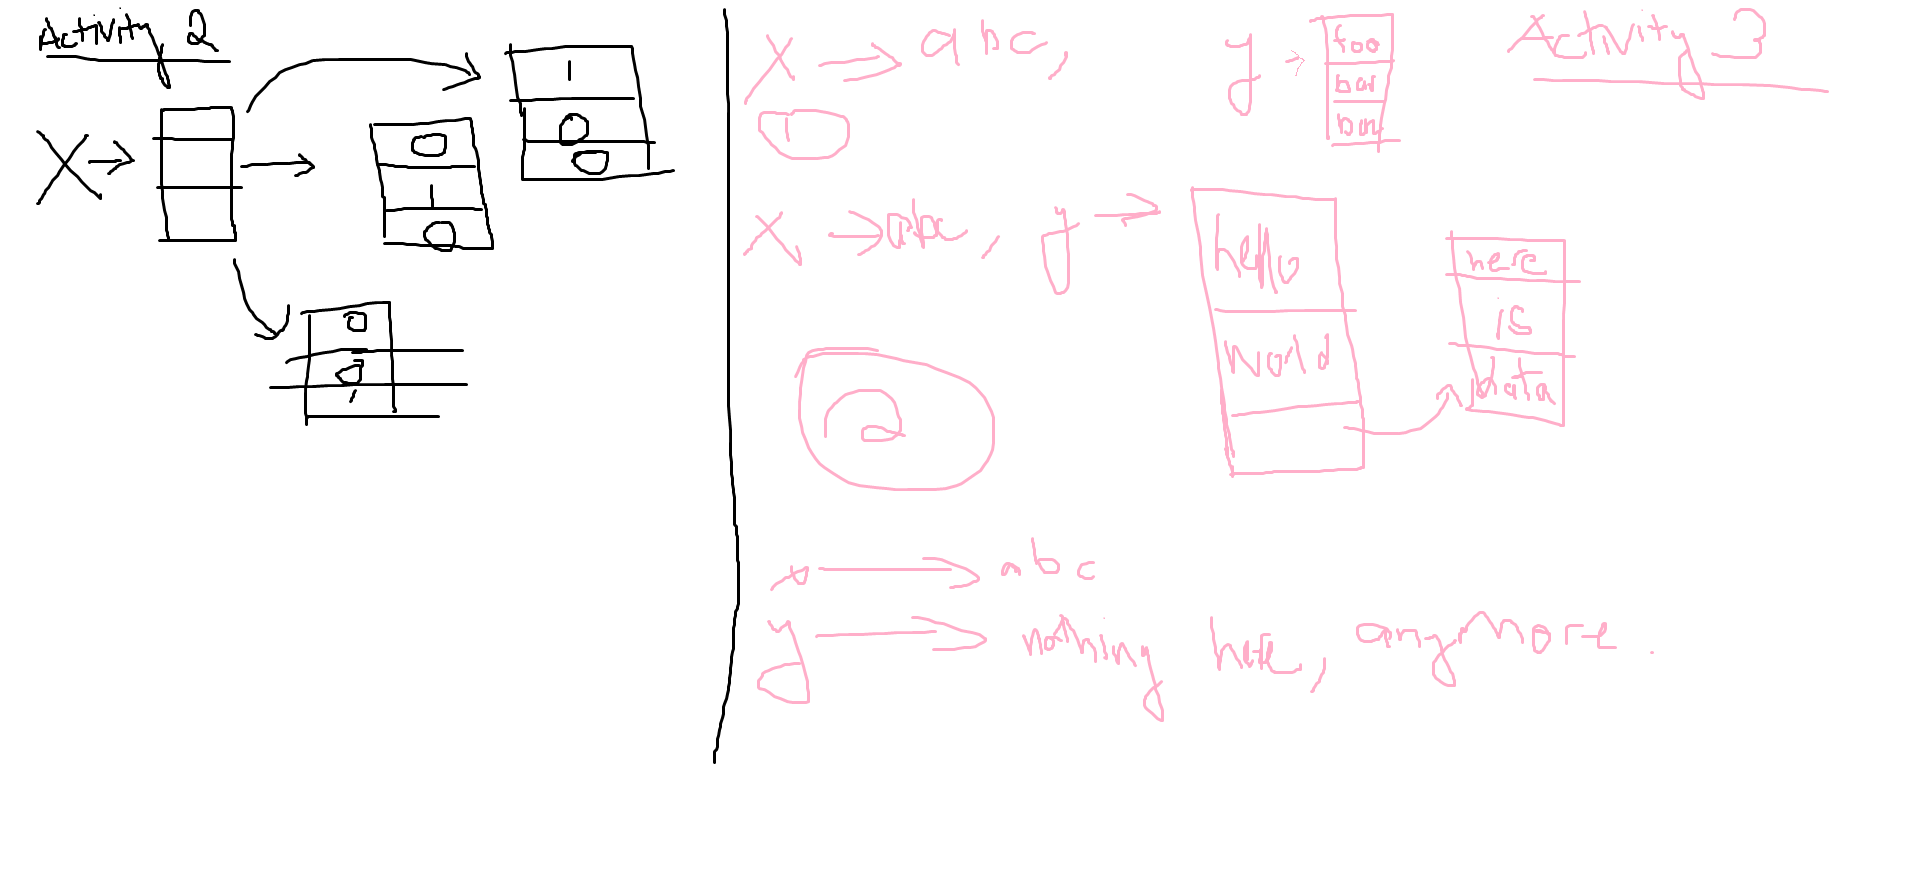 Activity 2
X
1
0
0
0
1
0
0
0
1
Activity 3
X abc, y
foo
bar
1
X abc, y
hello
world
here
is
data
2
x abc
y nothing here, anymore.